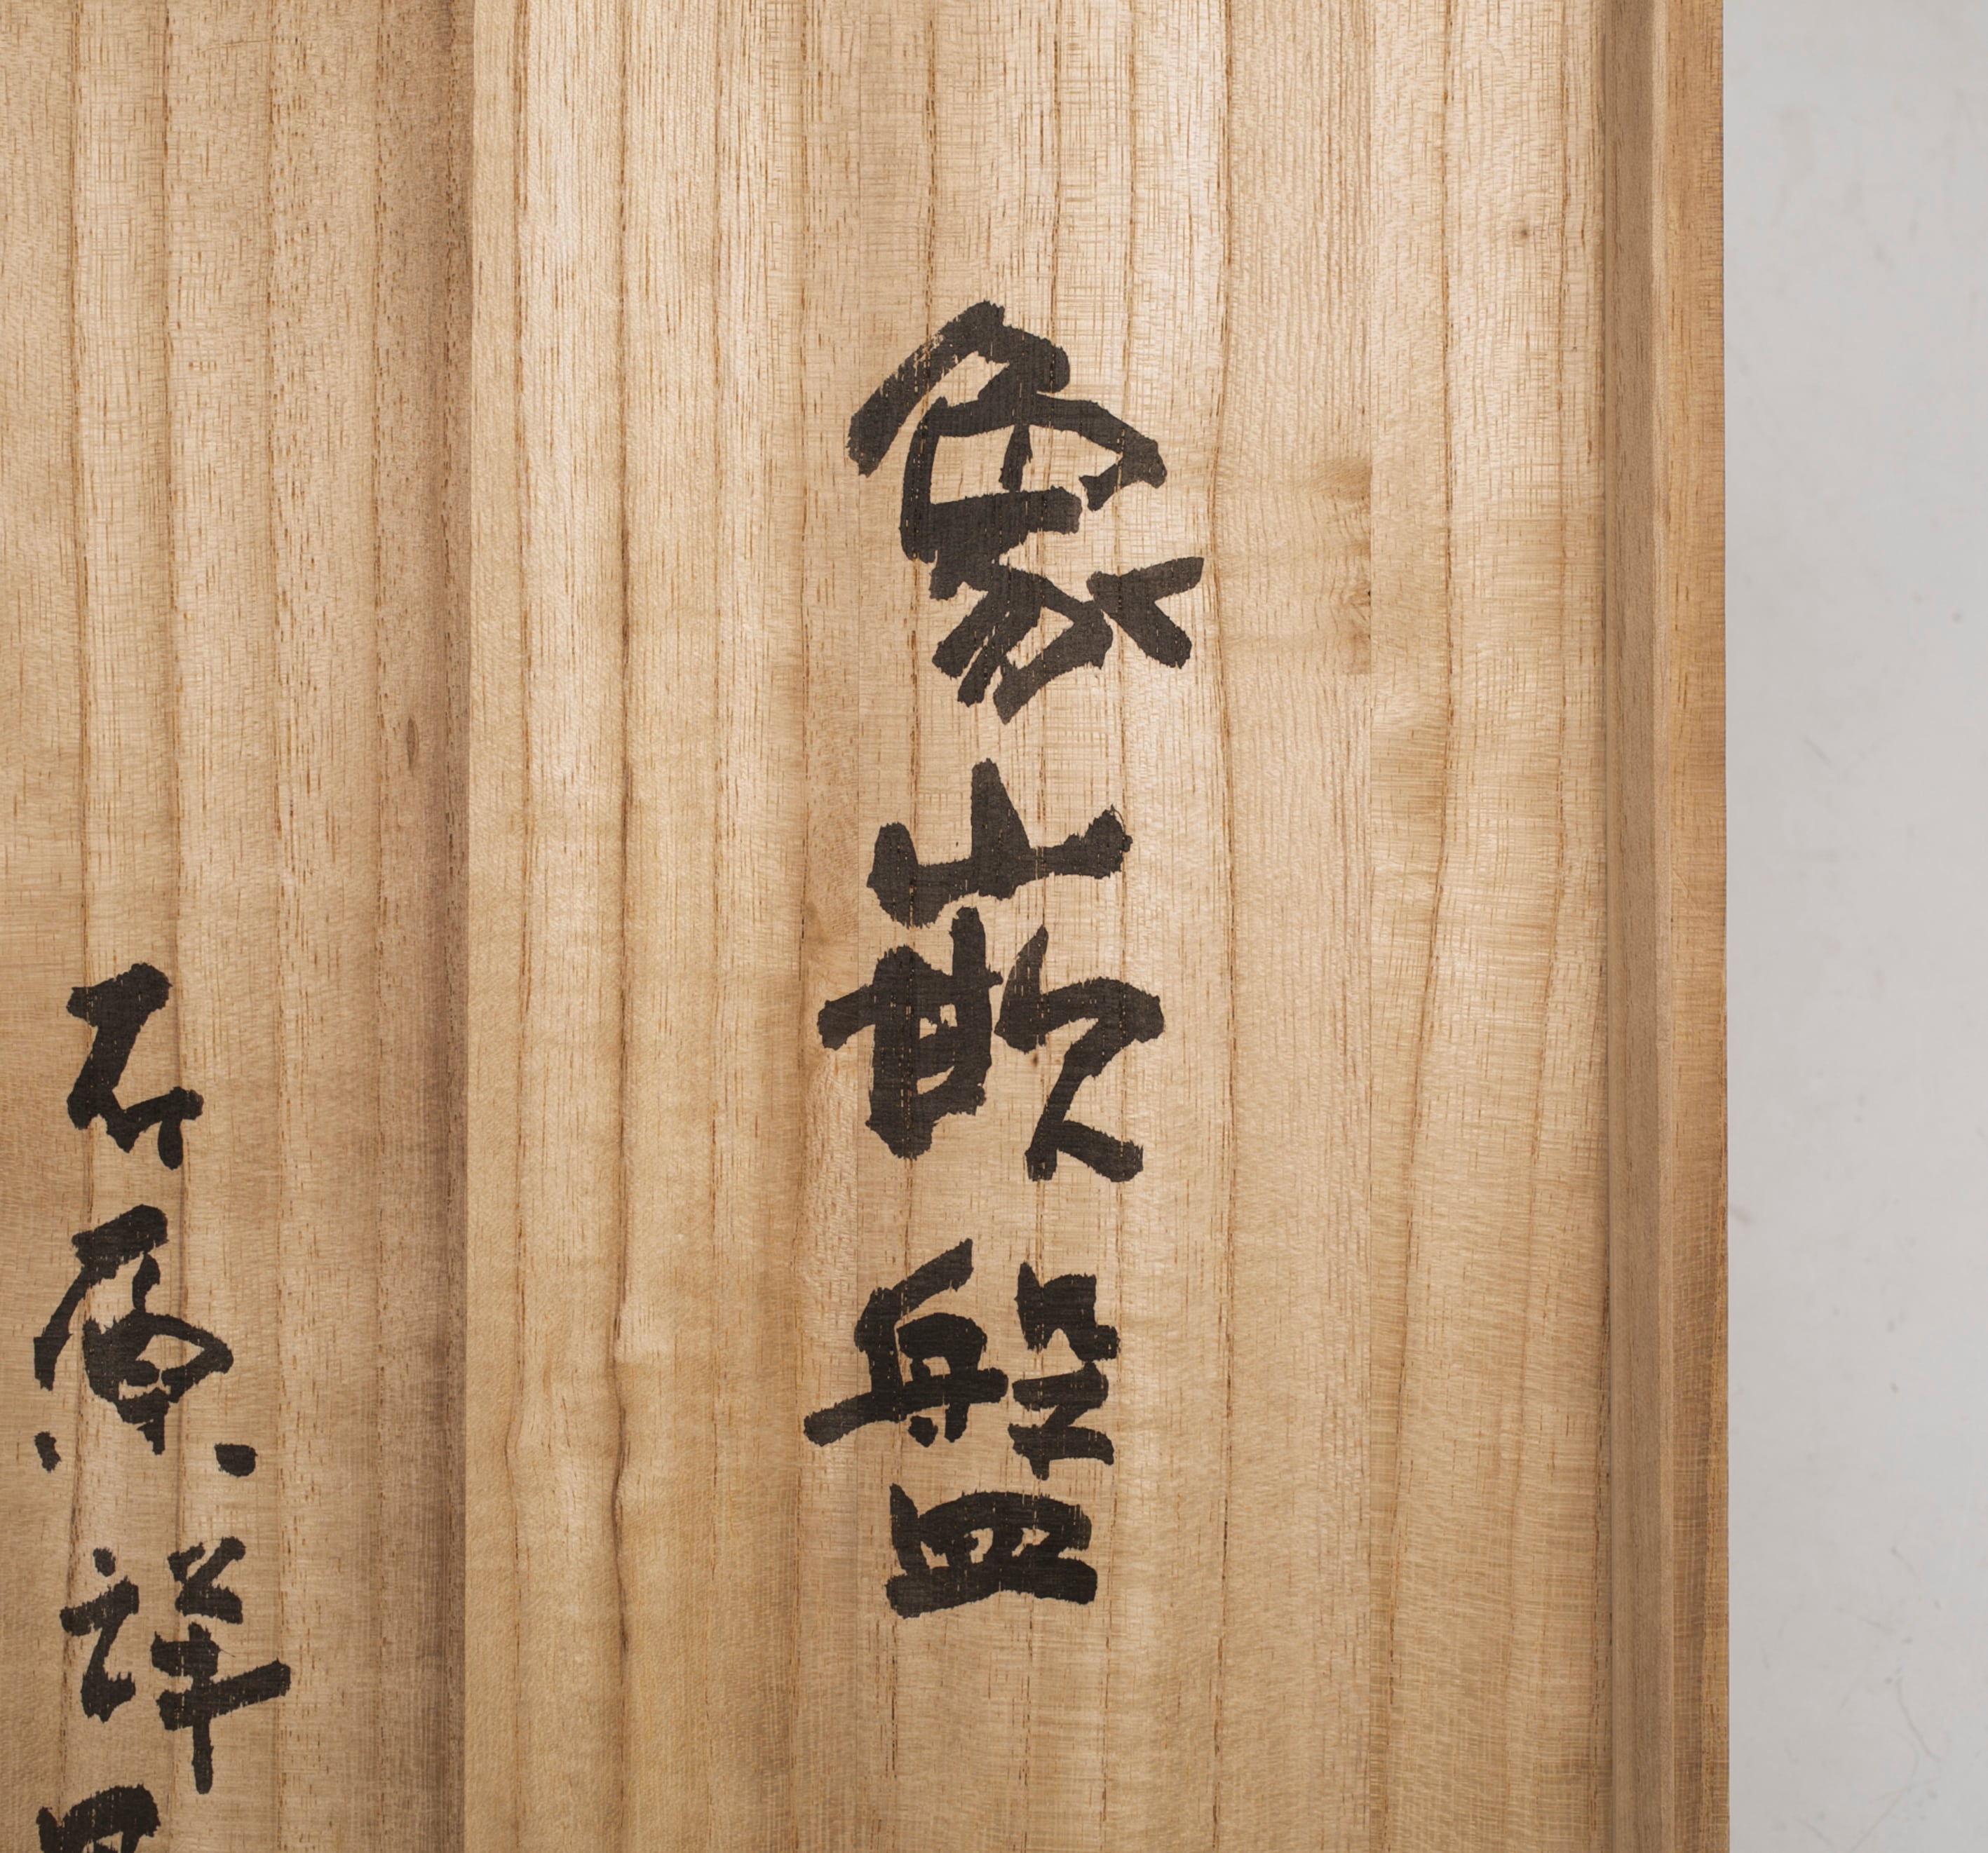 象嵌盤
石原祥